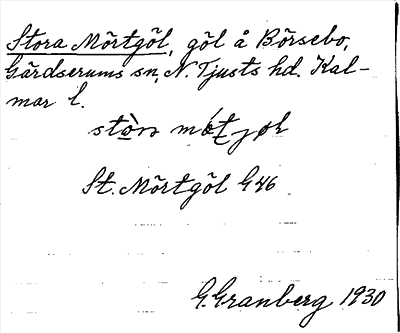 Stora Mörtgöl, göl å Börsebo,
Gärdserums sn, N. Tjusts hd. Kal-
mar l.
St. Mörtgöl G46
G. Granberg 1930